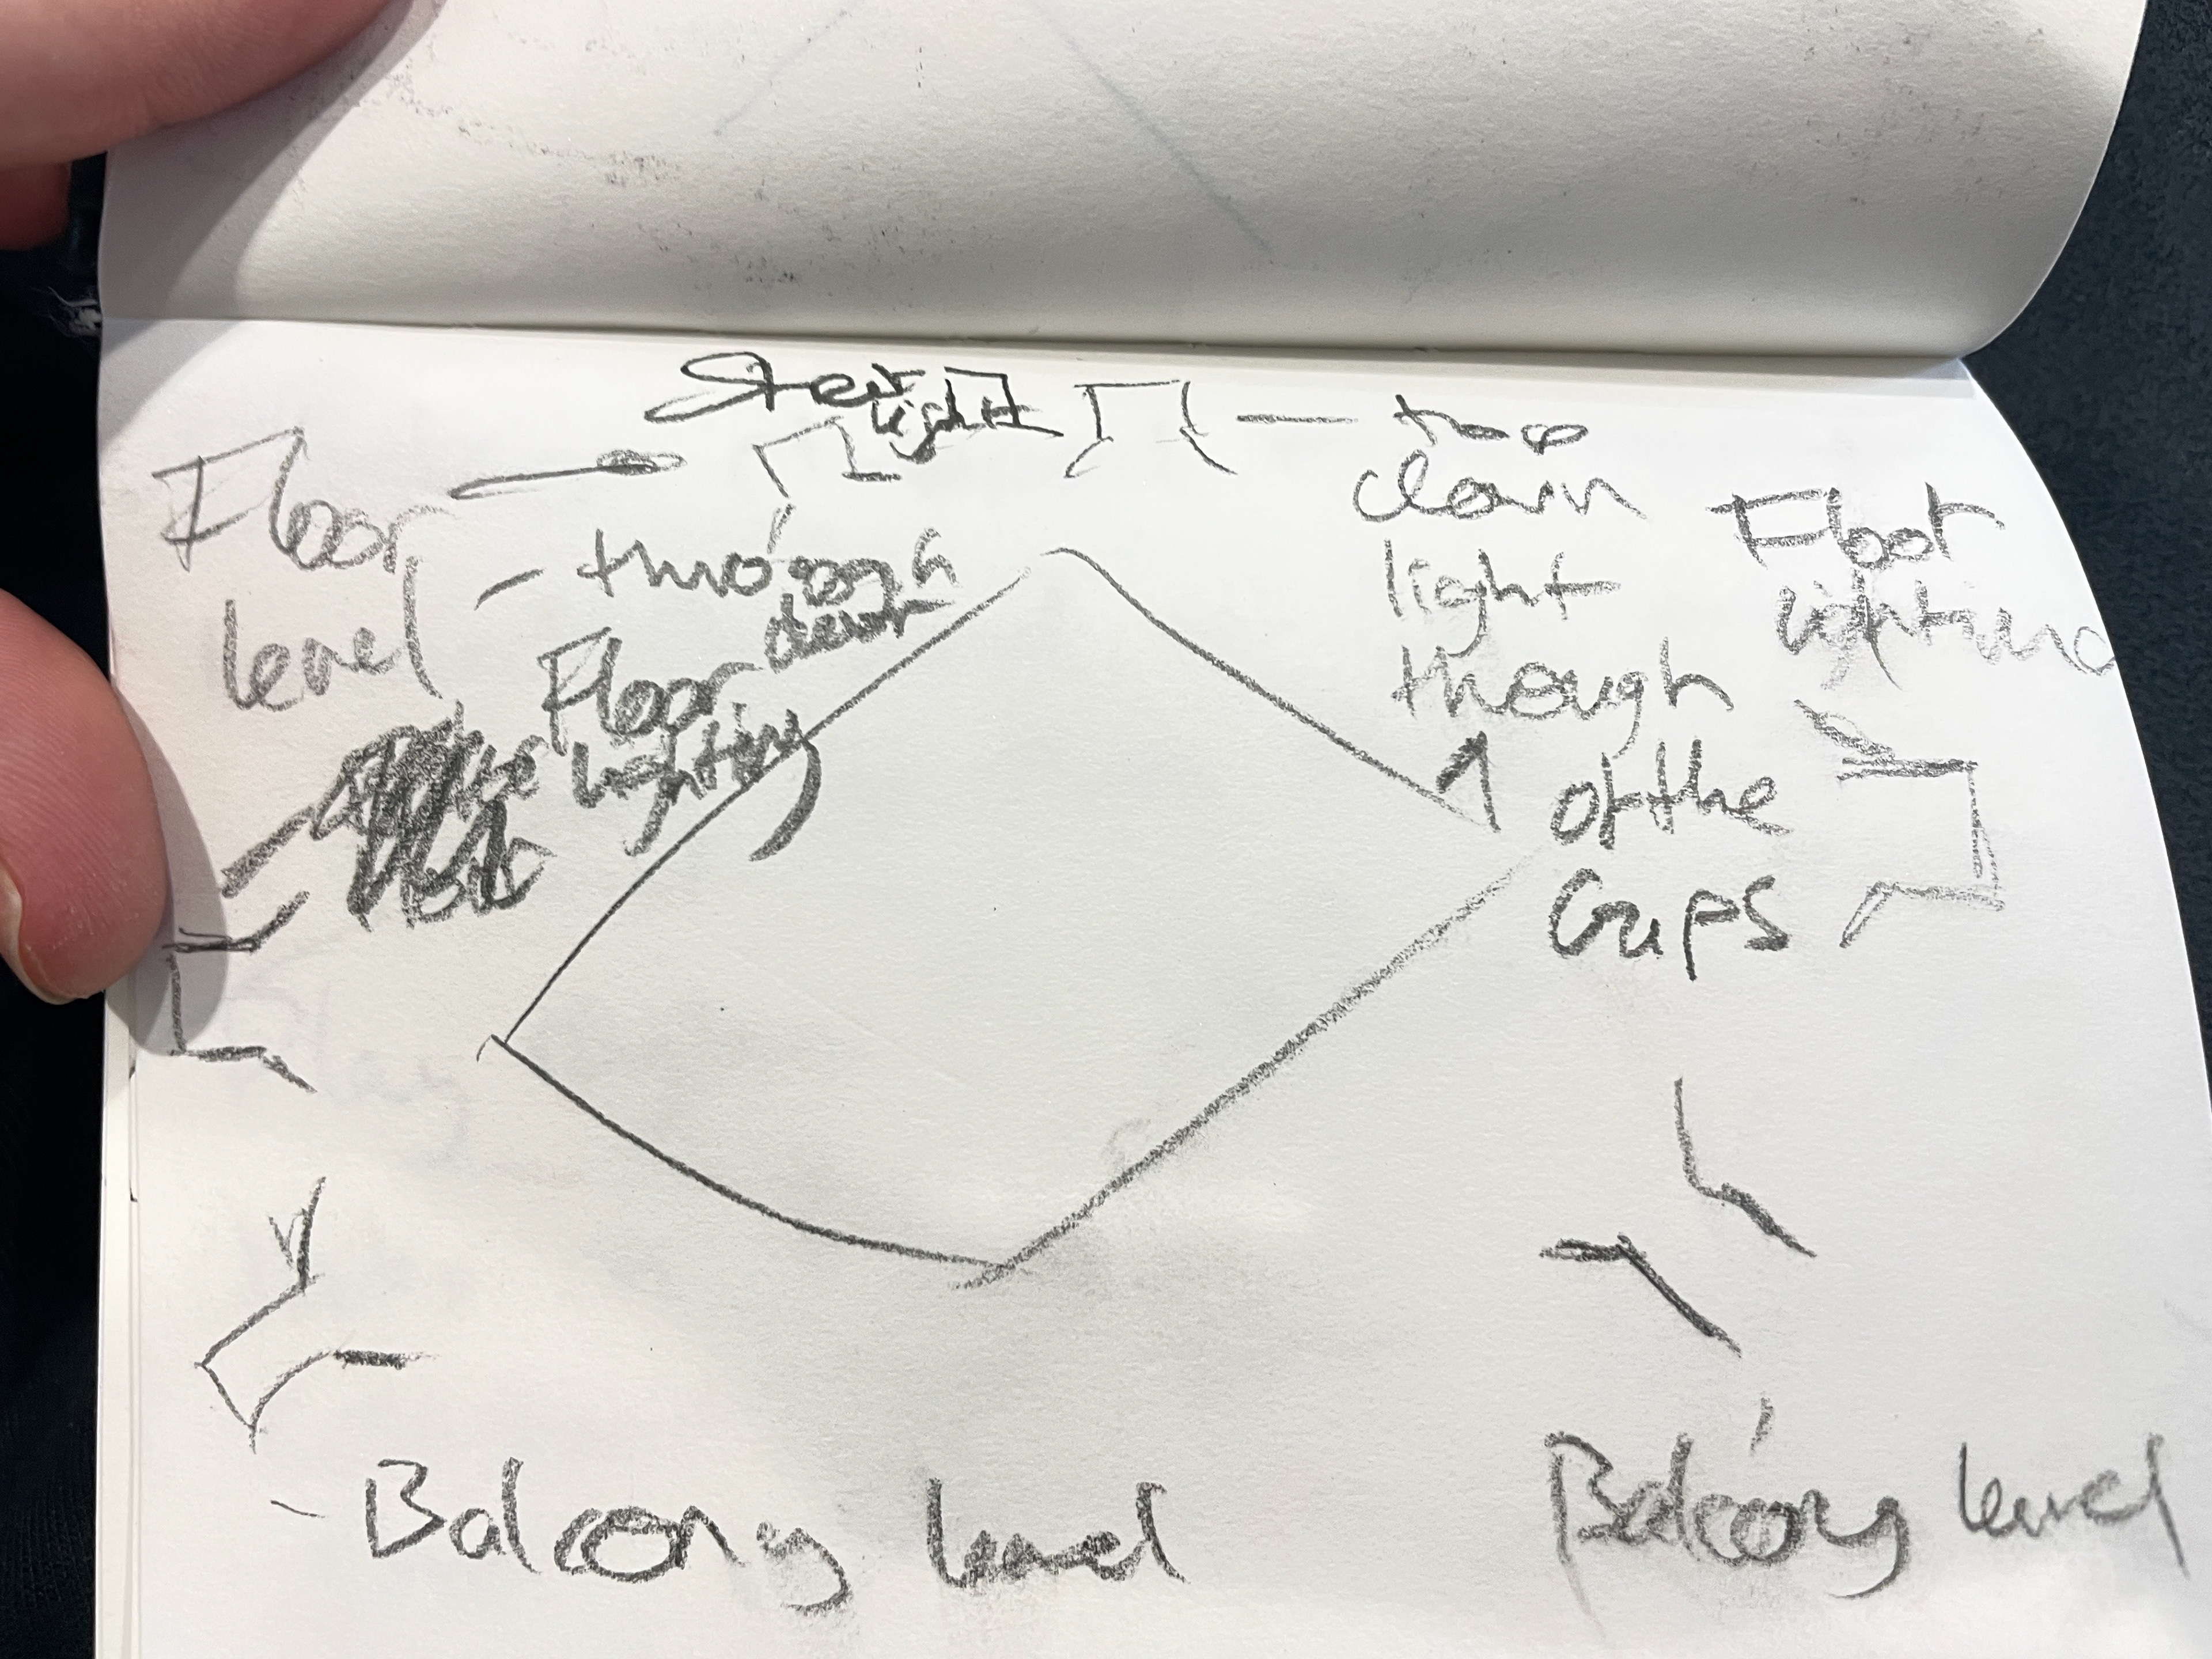 Street
light
Floor
level
through
door
Floor
lighting
top
down
light
though
of the
Gaps
Floor
lighting
Balcony level
Balcony level